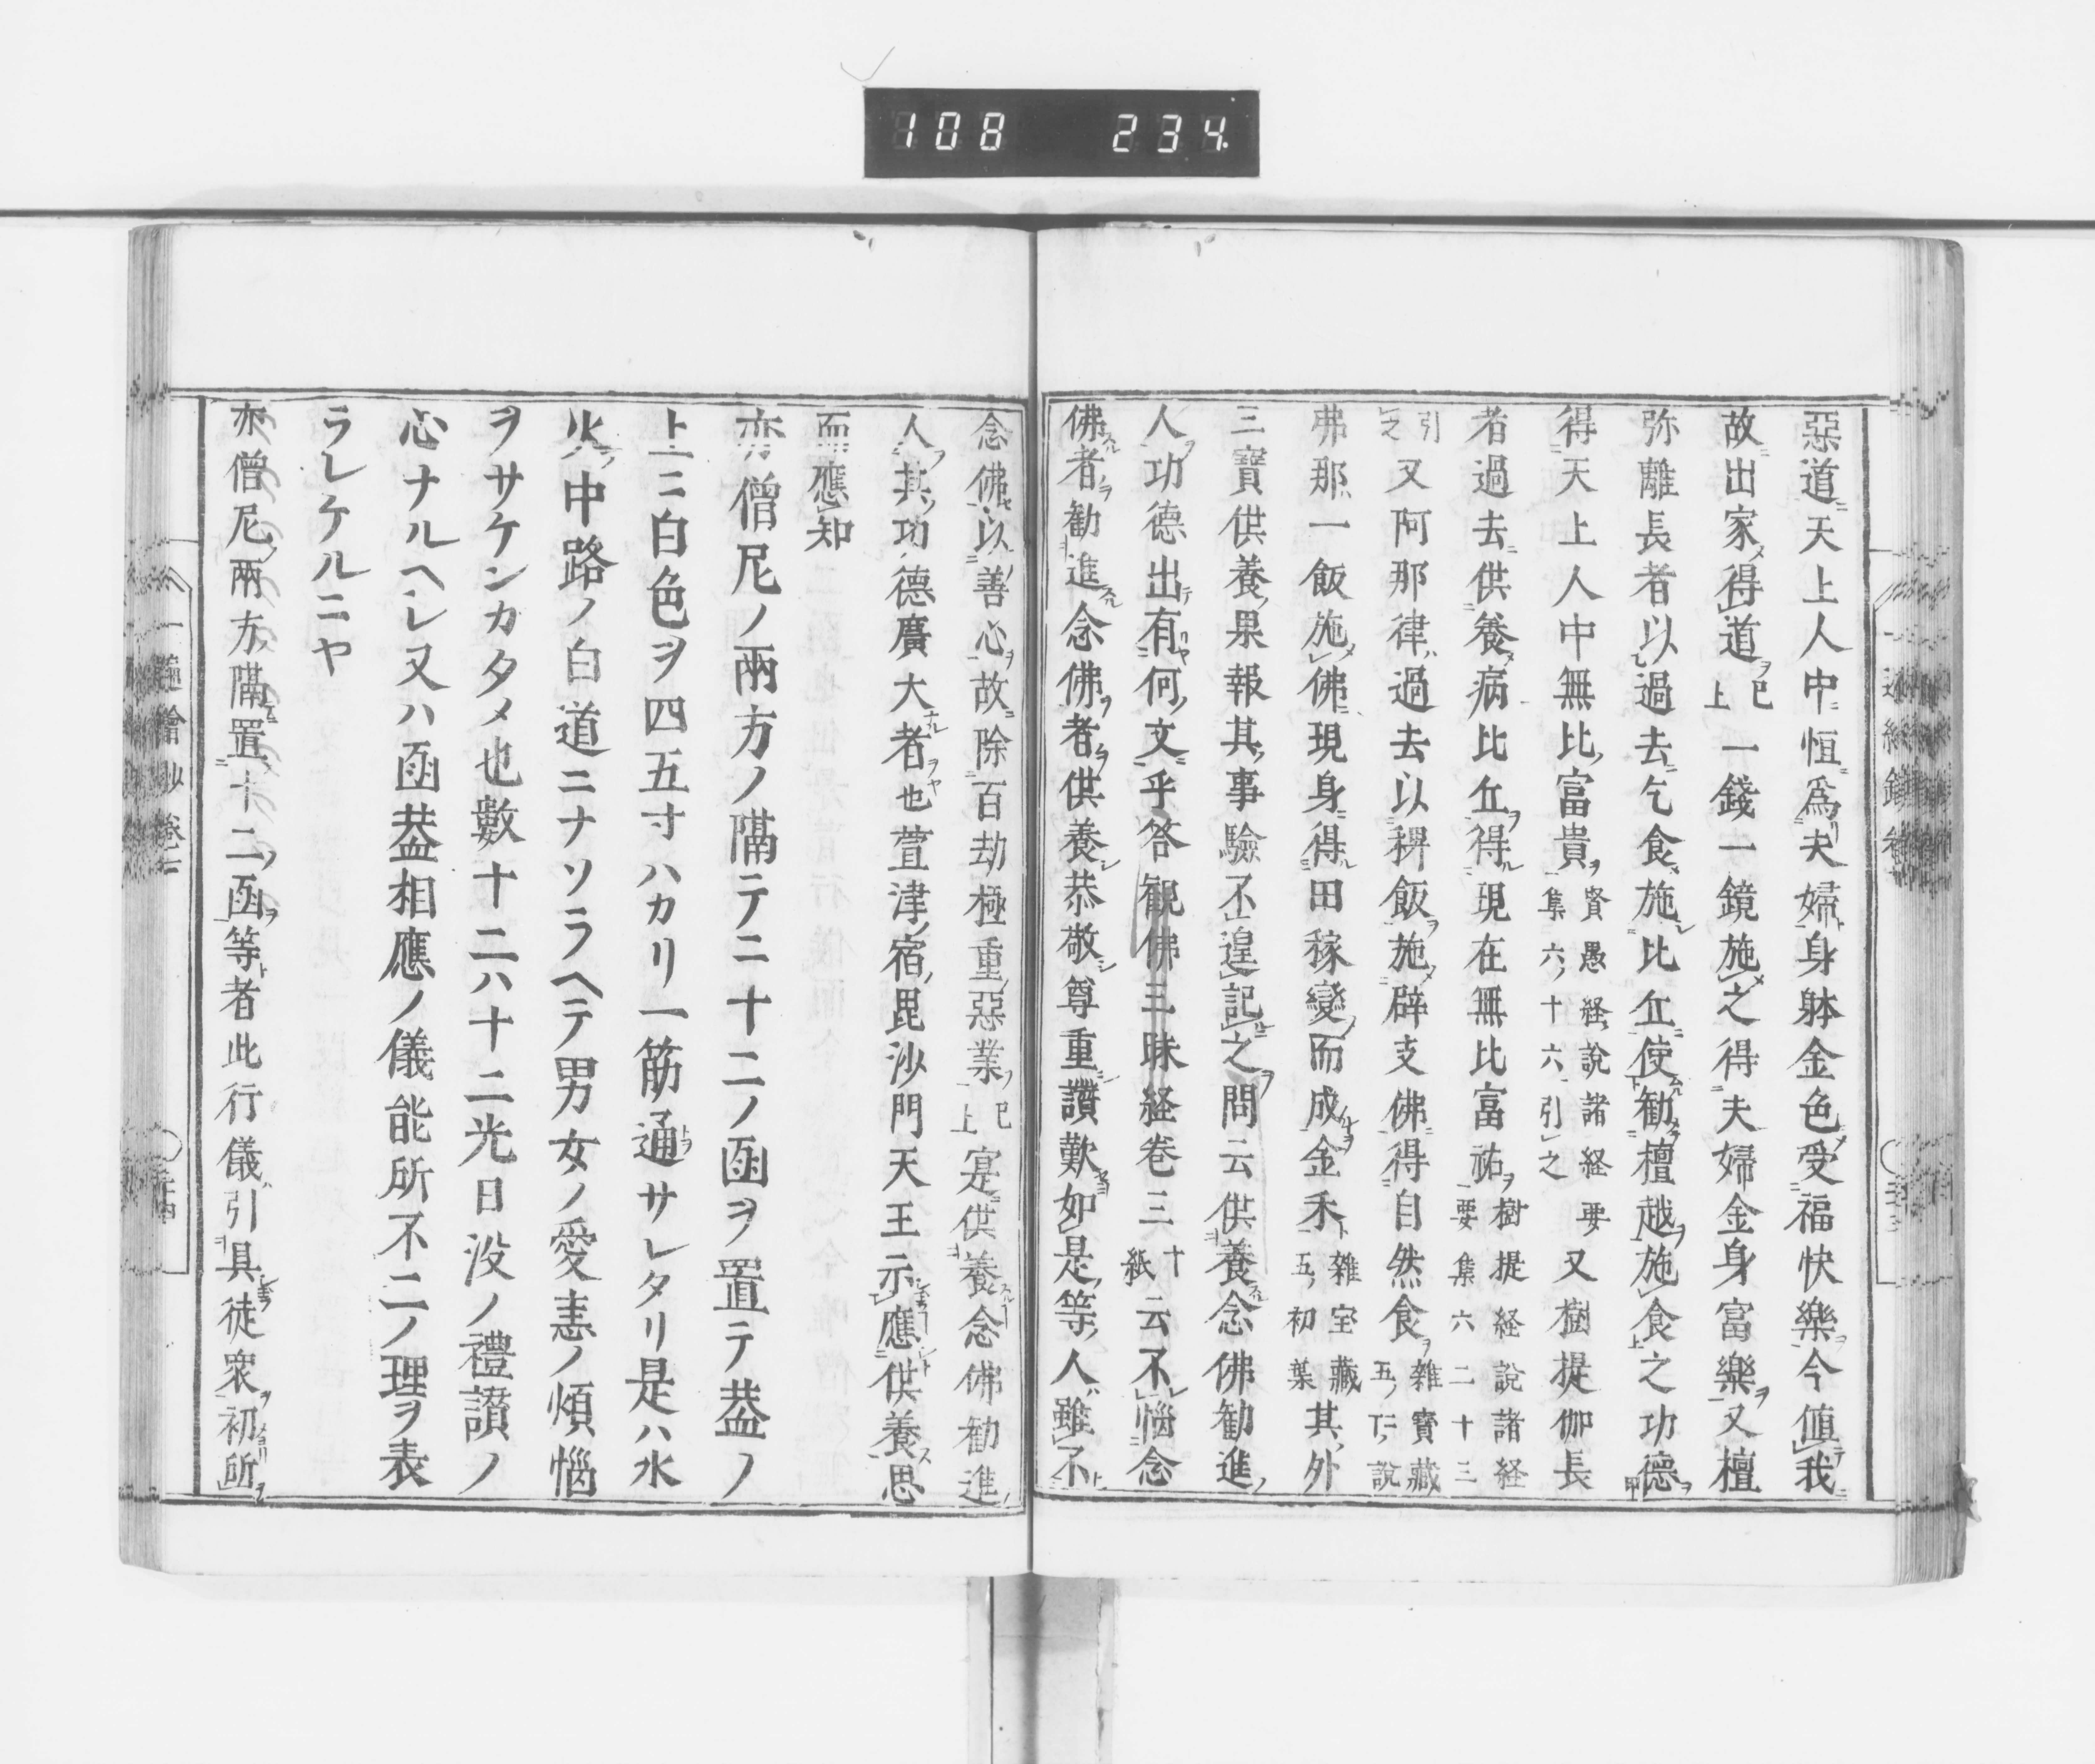 108 234
惡道天上人中恒爲夫婦身躰金色受福快樂今値我
故出家得道已上一錢一鏡施之得夫婦金身富樂又檀
弥離長者以過去乞食施比丘使勧檀越施食之功德
得天上人中無比富貴賢愚経説諸経要集六十六引之又樹提伽長
者過去供養病比丘得現在無比富祐樹提経説諸経要集六二十三
引之又阿那律過去以稗飯施辟支佛得自然食雜寶藏五説
弗那一飯施佛現身得田稼變而成金禾雜宝藏五初葉其外
三寶供養果報其事驗不遑記之問云供養念佛勧進
人功德出有何文乎答観佛三昧経巻三十紙云不惱念
佛者勧進念佛者供養恭敬尊重讃歎如是等人雖不
念佛以善心故除百劫極重惡業已上寔供養念佛勧進
人其功德廣大者也萱津宿毘沙門天王示應供養思
而應知
亦僧尼ノ兩方ノ隔テニ十二ノ函ヲ置テ葢ノ
上ニ白色ヲ四五寸ハカリ一筋通サレタリ是ハ水
火中路ノ白道ニナソラヘテ男女ノ愛恚ノ煩惱
ヲサケンカタメ也數十二ハ十二光日没ノ禮讃ノ
心ナルヘシ又ハ函葢相應ノ儀能所不二ノ理ヲ表
ラレケルニヤ
亦僧尼兩方隔置十二函等者此行儀引具徒衆初所